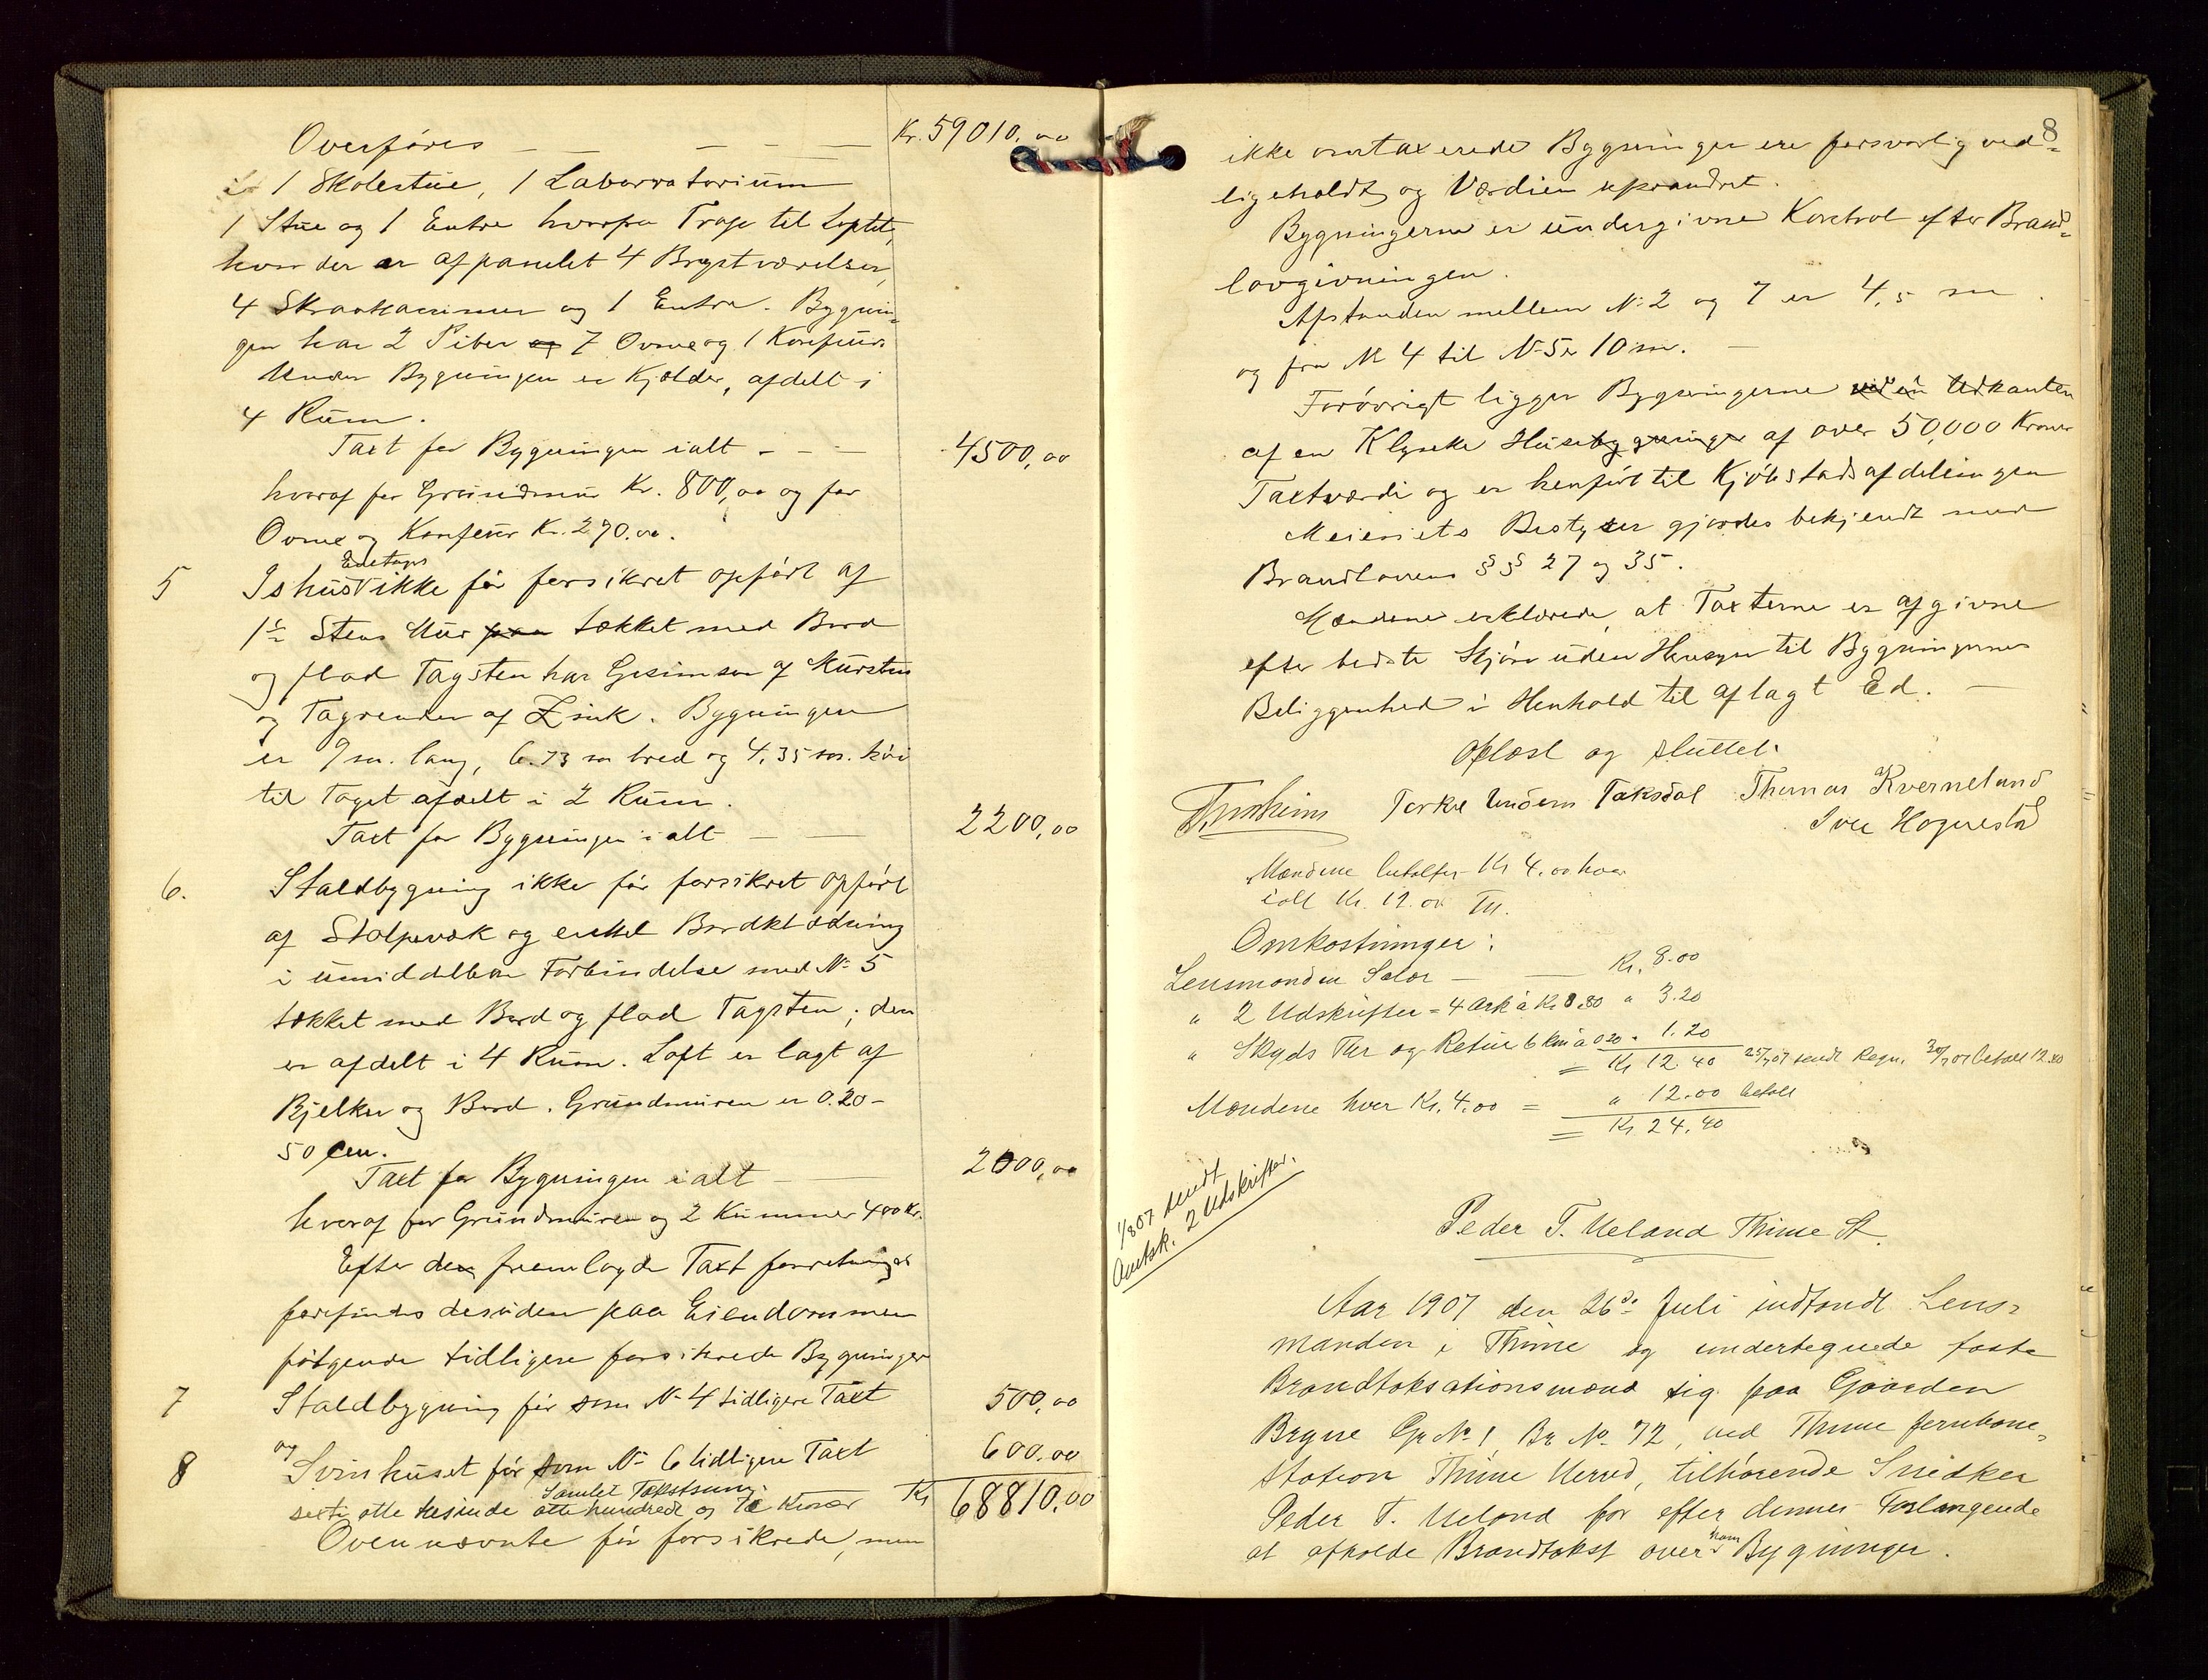 Overføres — — — — — Kr. 59010,00
1 Skolestue, 1 Laboratorium
1 Stue og 1 Entre hvorfra Trap til Loftet,
hvor der er afpanelet 4 Brystværelser,
4 Skraakammer og 1 Entre. Bygnin-
gen har 2 Piber og 7 Ovne og 1 Komfur.
Under Bygningen er Kjælder, afdelt i
4 Rum.
Taxt for Bygningen ialt - - - 4500,00
hvoraf for Grundmur Kr. 800,00 og for
Ovne og Komfeur Kr. 270.00.
Enetages
5 Ishus ikke før forsikret opført af
1½ Stens Mur paa tækket med Bord
og flad Tagsten har Gesimser af Mursten
og Tagrender af Zink. Bygningen
er 9 m. lang, 6.73 m bred og 4,35 m. høi
til Taget afdelt i 2 Rum.
Taxt for Bygningen ialt — — 2200,00
6. Staldbygning ikke før forsikret opført
af Stolpevæk og enkel Bordklædning
i umiddelbar Forbindelse med No 5
tækket med Bord og flad Tagsten; den
er afdelt i 4 Rum. Loft er lagt af
Bjelker og Bord. Grundmuren er 0.20-
50 cm.
Taxt for Bygningen ialt — — 2000,00
hvoraf for Grundmuren og 2 Kummer 400 Kr.
Efter den fremlagde Taxtforretninger
forefindes desuden paa Eiendommen
følgende tidligere forsikrede Bygninger
7 Staldbygning før som No 4 tidligere Taxt 500,00
og
8 Svinhuset før som No 6 tidligere Taxt 600.00
Samlet Takstsum:
seksti otte tusinde otte hundrede og Ti Kroner Kr 68810,00
Ovennævnte før forsikrede, men
8
ikke omtaxerede Bygninger ere forsvarlig ved-
ligeholdt og Værdien uforandret.
Bygningerne er undergivne Kontrol efter Brand-
lovgivningen.
Afstanden mellem No 2 og 7 er 4,5 m
og fra No 4 til No 5 er 10 m. —
Forøvrigt ligger Bygningerne ved en Udkanten
af en Klynke Husebygninger af over 50,000 Kroner
Taxtværdi og er henført til Kjøbstadsafdelingen
Meieriets Bestyrer gjordes bekjendt med
Brandlovens §§ 27 og 35.
Mændene erklærede, at Taxterne er afgivne
efter bedste Skjøn uden Hensyn til Bygningernes
Beliggenhed i Henhold til aflagt Ed. —
Oplæst og sluttet.
Torkel Undem Taksdal Thomas Kverneland
Iver Hognestad
Mændene betaltes Kr 4.00 hver
ialt Kr. 12.00 Tu.
Omkostninger:
Lensmanden Salær — — Kr. 8.00
" 2 Udskrifter = 4 Ark à Kr 0.80 " 3.20
" Skyds Thr og Retur 6 km à 0.20 " 1.20
= Kr 12.40 25/7 07 sendt Regn. 30/7 07 betalt 12.40
Mændene hver Kr. 4.00 = " 12.00 betalt
= Kr 24.40
1/8 07 sendt
Amtsk. 2 Udskrifter.
Peder T. Ueland Thime St.
Aar 1907 den 26de Juli indfandt Lens-
manden i Thime og undertegnede faste
Brandtaksationsmænd sig paa Gaarden
Bryne Gr No 1, Br No. 72, ved Thime Jernbane-
station Thime Herred, tilhørende Snedker
Peder T. Ueland for efter dennes Forlangende
at afholde Brandtakst over hans Bygninger.